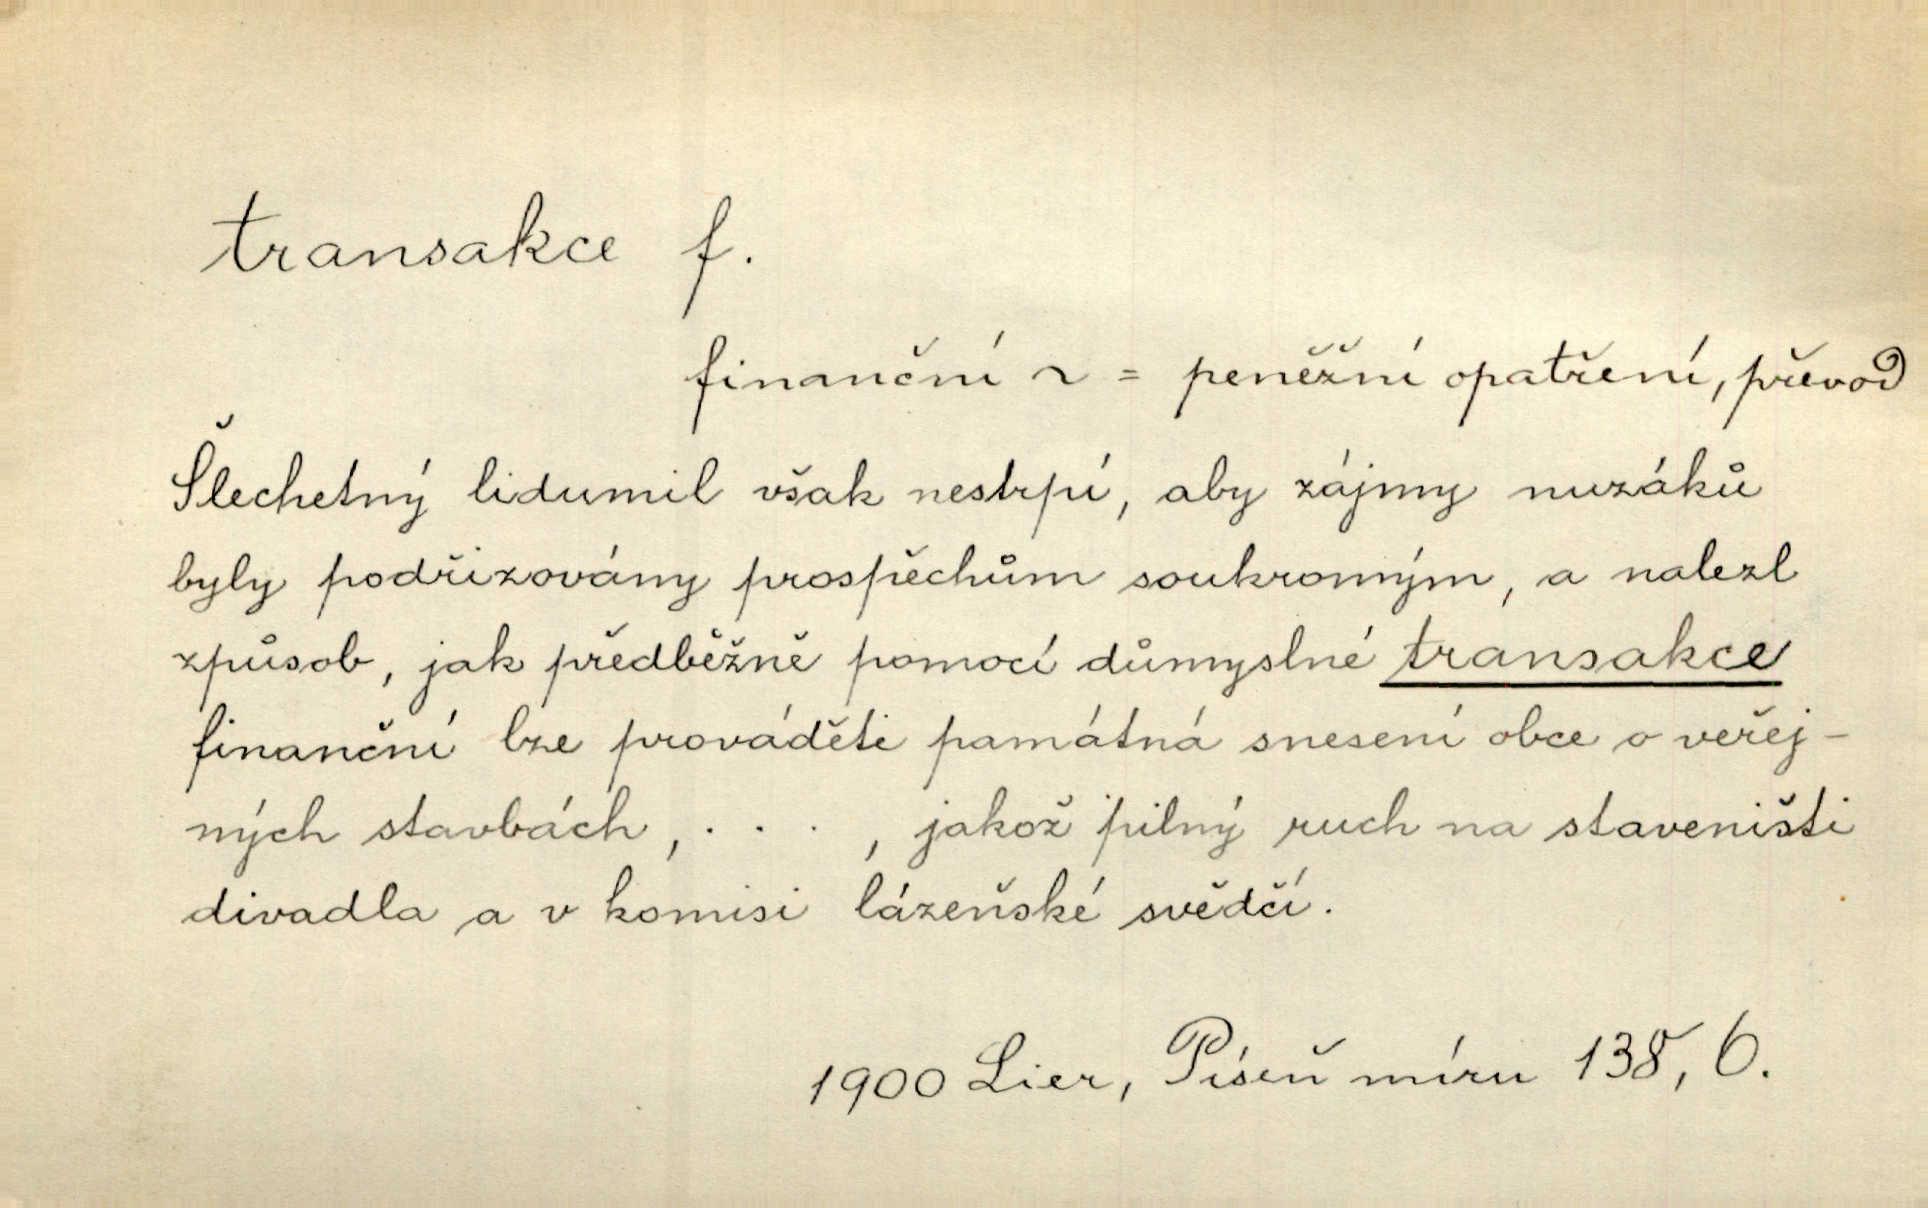 transakce f.
finanční ~ = peněžní opatření, převod
Šlechetný lidumil však nestrpí, aby zájmy nuzáků
byly podřizovány prospěchům soukromým, a nalezl
způsob, jak předběžně pomocí důmyslné transakce
finanční lze prováděti památná snesení obce o veřej-
ných stavbách, . . . , jakož pilný ruch na staveništi
divadla a v komisi lázeňské svědčí.
1900 Lier, Píseň míru 138, 6.